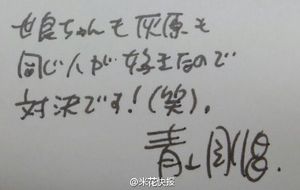 蘭ちゃんも灰原も
同じ人が好きなので
対決です！(笑).
青山剛昌.
@米花快报